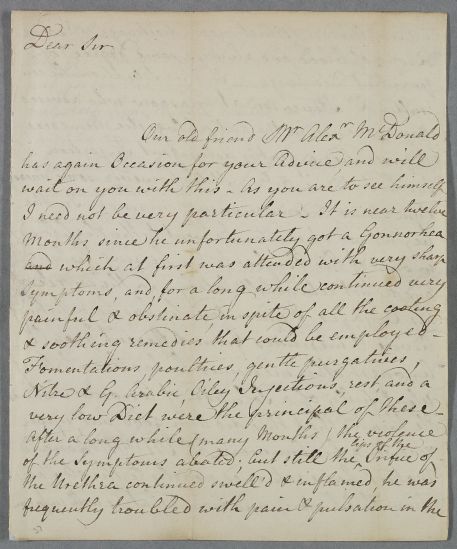 Dear Sir
Our old friend Mr Alexr McDonald
has again Occasion for your Advice and will
wait on you with this - As you are to see himself
I need not be very particular - It is near twelve
Months since he unfortunately got a Gonnorhea
and which at first was attended with very sharp
Symptoms, and for a long while continued very
painful & obstinate in spite of all the cooling
& soothing remedies that could be employed -
Fomentations, poultries, gentle purgatives,
Nitre & G. Arabic, Oiley Injections, rest, and a
very low Diet were the principal of these -
After a long while (many Months) the violence
of the Symptoms abated; but still the lips of the Orifice of
the Urethra continued swell'd & inflam'd, he was
frequently troubled with pain & pulsation in the